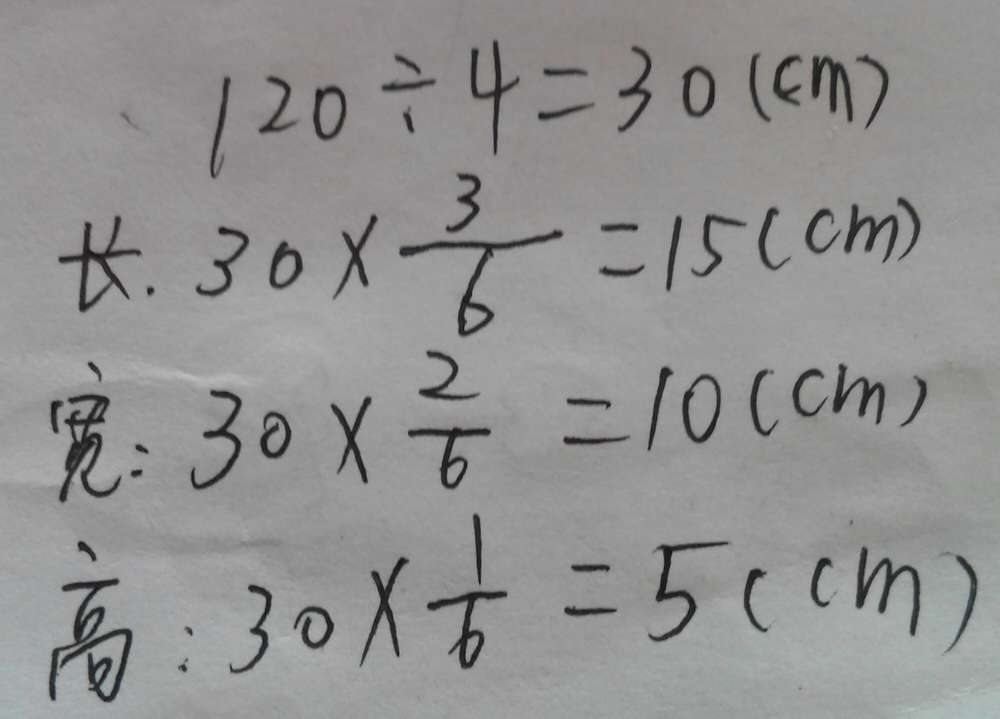 120÷4=30(cm)
长.30×3/6=15(cm)
宽:30×2/6=10(cm)
高:30×1/6=5(cm)